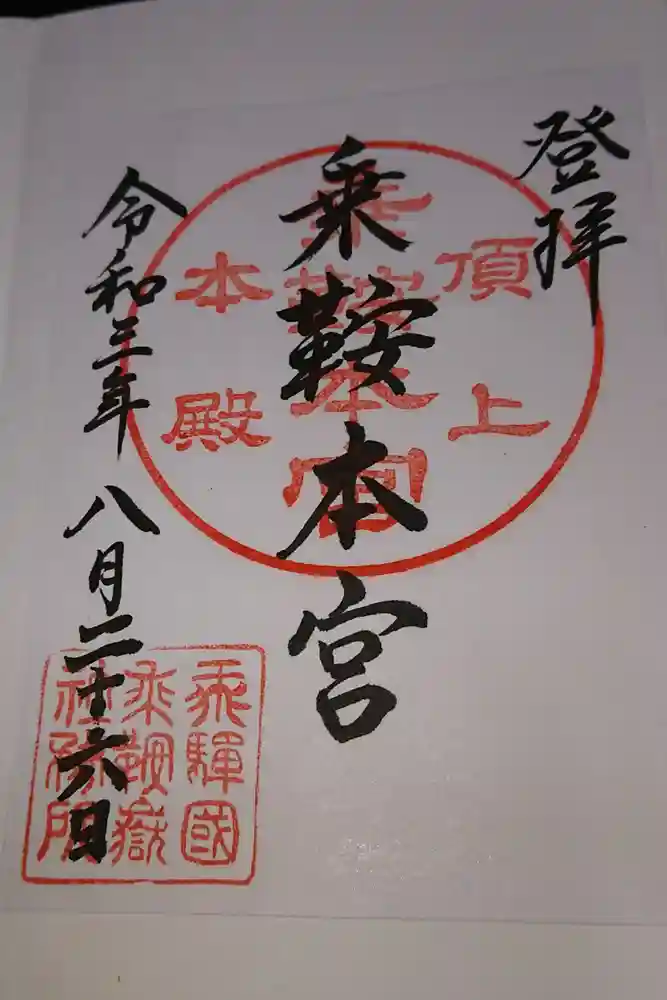 登拝
頂上
乗鞍本宮
乗鞍本宮
本殿
令和三年八月二十六日
乗鞍嶽
社務所